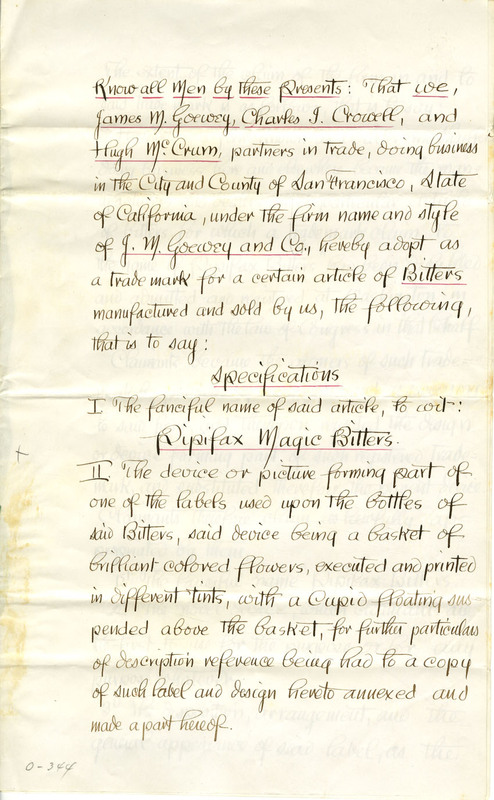 Know all Men by these Presents: That we,
James M. Goewey, Charles J. Crowell, and
Hugh McCrum, partners in trade, doing business
in the City and County of San Francisco, State
of California, under the firm name and style
of J. M. Goewey and Co., hereby adopt as
a trade mark for a certain article of Bitters
manufactured and sold by us, the following,
that is to say:
Specifications
I The fanciful name of said article, to wit:
Pipifax Magic Bitters.
II. The device or picture forming part of
one of the labels used upon the bottles of
said Bitters, said device being a basket of
brilliant colored flowers, executed and printed
in different tints, with a Cupid floating sus
pended above the basket, for further particulars
of description reference being had to a copy
of such label and design hereto annexed and
made a part hereof.
O-344